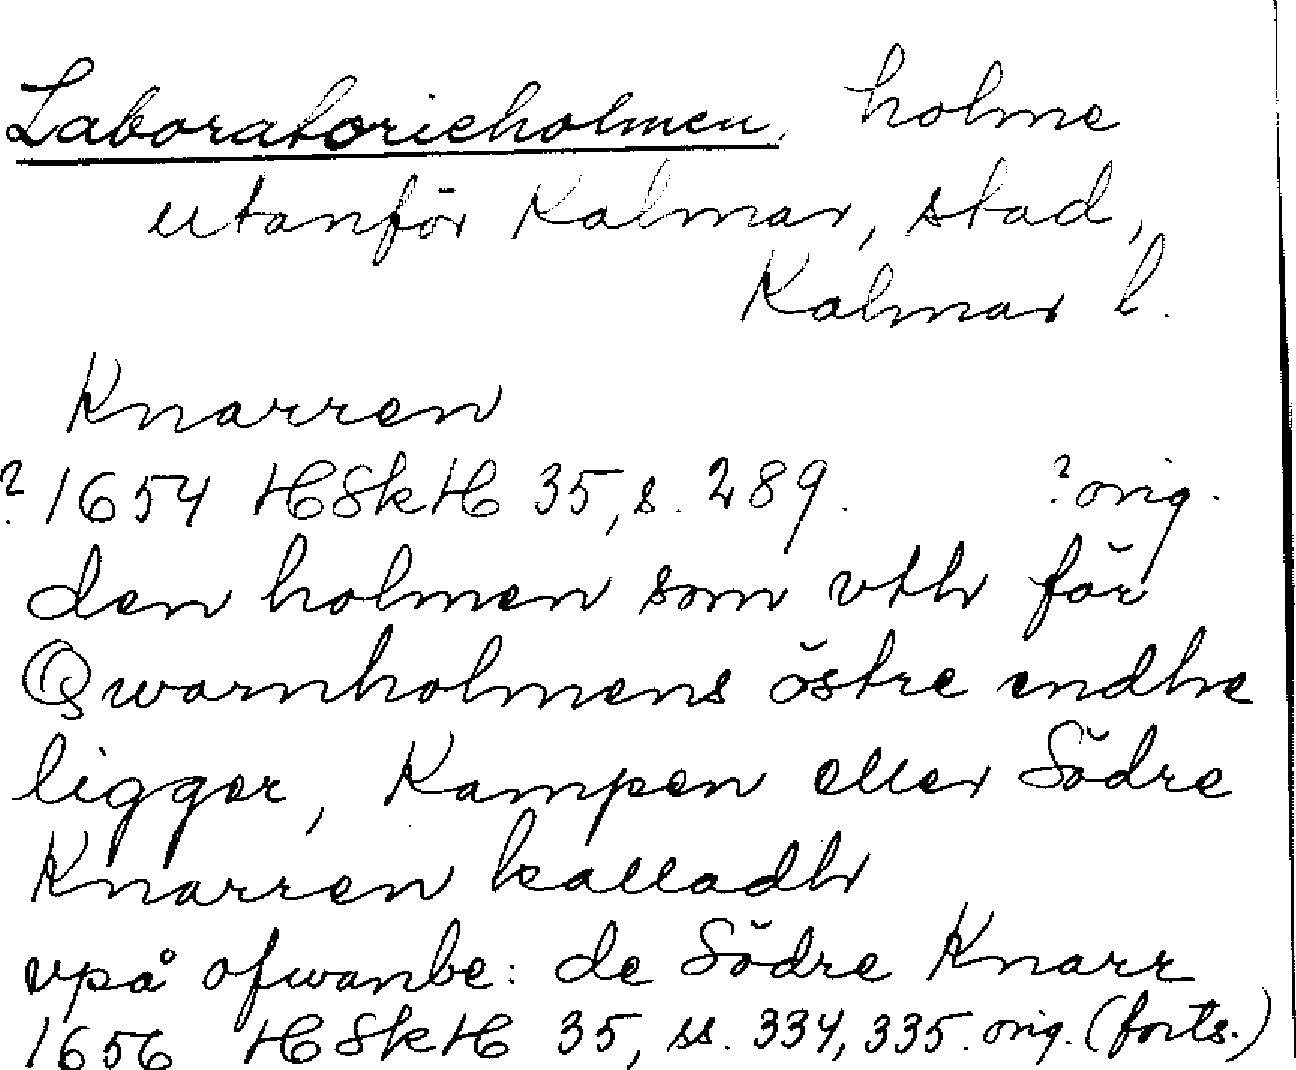 Laboratorieholmen, holme
utanför Kalmar, stad,
Kalmar l.
Knarren
? 1654 HSkH 35, s. 289. ? orig.
den holmen som vthr för
Qwarnholmens östre endhe
ligger, Kampen eller Södre
Knarren kalladhr
vpå ofwanbe: de Södre Knarr
1656 HSkH 35, ss. 334, 335. orig. (forts.)